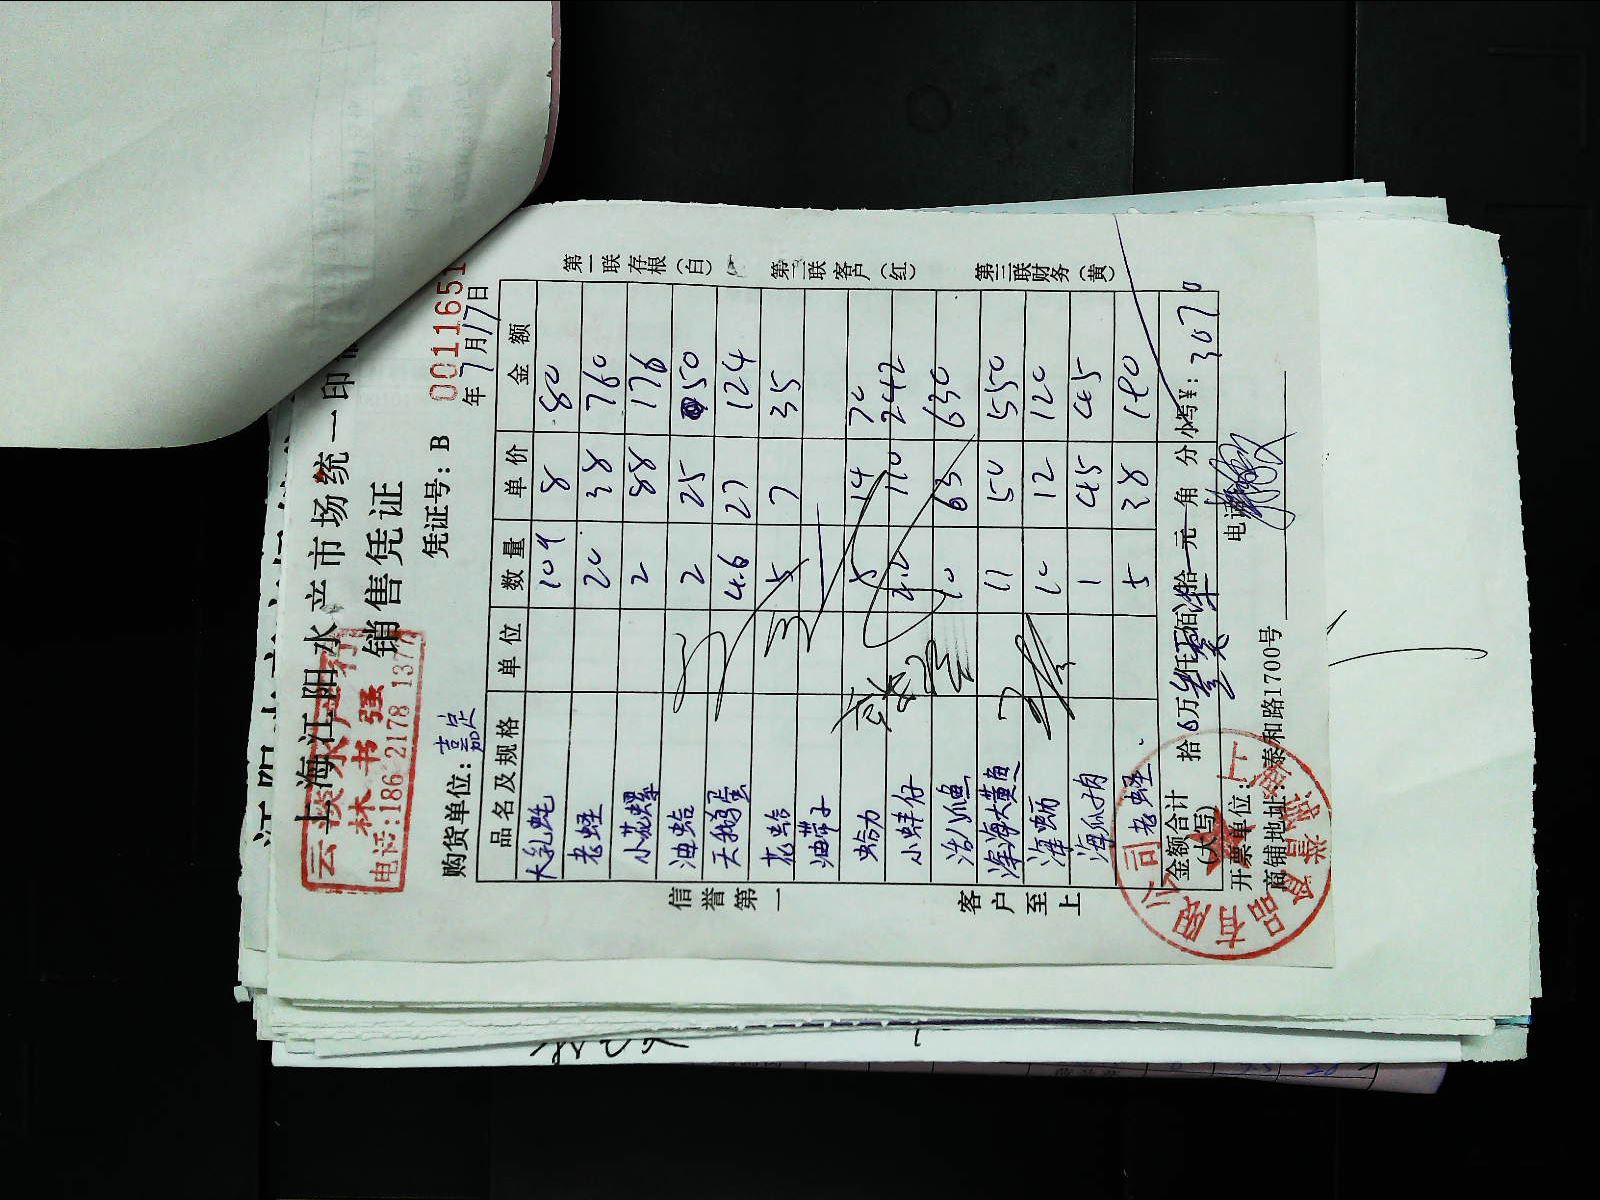 上海江阳水产市场统一印
云淡水产行
林书强
电话:186 2178 1377
销售凭证
凭证号: B 0011651
购货单位: 喜足 年7月17日
品名及规格 单位 数量 单价 金额
大乳蚝 109 8 80
老蛏 20 38 760
小花螺 2 88 176
油蛤 2 25 50
天鹅蛋 4.6 27 124
花蛤 5 7 35
油带子
蛤力 5 14 70
小蚌仔 2.2 110 242
活八爪鱼 10 63 630
深海大黄鱼 11 50 550
海蛎 10 12 120
海瓜子肉 1 45 45
老蛏 5 38 190
金额合计(大写) 拾 万 仟 佰 拾 元 角 分 小写¥: 3070
开票单位: 上海 电话
商铺地址: 泰和路1700号
信誉第一
客户至上
第一联存根(白)
第二联客户(红)
第三联财务(黄)
食品有限公司